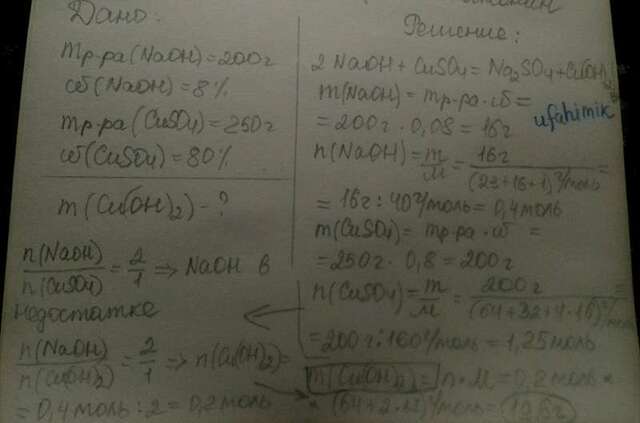 Дано:
mр-ра (NaOH) = 200г
ω(NaOH) = 8%
mр-ра (CuSO4) = 250г
ω(CuSO4) = 80%
m(Cu(OH)2) - ?
n(NaOH) / n(CuSO4) = 2/1 => NaOH в
недостатке
n(NaOH) / n(Cu(OH)2) = 2/1 => n(Cu(OH)2) =
= 0,4моль : 2 = 0,2моль
Решение:
2 NaOH + CuSO4 = Na2SO4 + Cu(OH)2
m(NaOH) = mр-ра · ω =
= 200г · 0,08 = 16г
ufahimik
n(NaOH) = m/M = 16г / (23+16+1) г/моль =
= 16г : 40 г/моль = 0,4моль
m(CuSO4) = mр-ра · ω =
= 250г · 0,8 = 200г
n(CuSO4) = m/M = 200г / (64+32+4·16) г/моль =
= 200г : 160 г/моль = 1,25моль
m(Cu(OH)2) = n · M = 0,2моль ×
× (64+2·17) г/моль = 19,6г